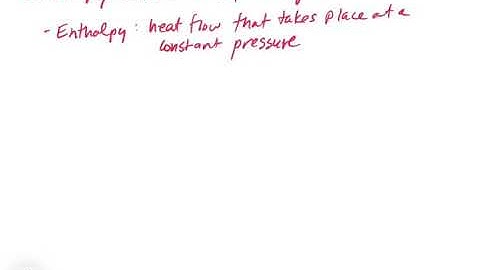 - Enthalpy : heat flow that takes place at a
constant pressure